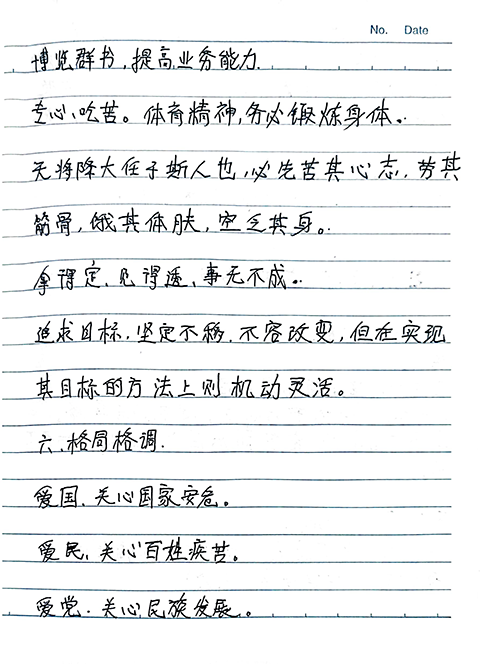 No. Date
博览群书,提高业务能力.
专心、吃苦。体育精神,务必锻炼身体。
天将降大任于斯人也,必先苦其心志,劳其
筋骨,饿其体肤,空乏其身。
拿得定、见得透、事无不成。
追求目标,坚定不移.不容改变,但在实现
其目标的方法上则机动灵活。
六、格局格调.
爱国、关心国家安危。
爱民、关心百姓疾苦。
爱党.关心民族发展。